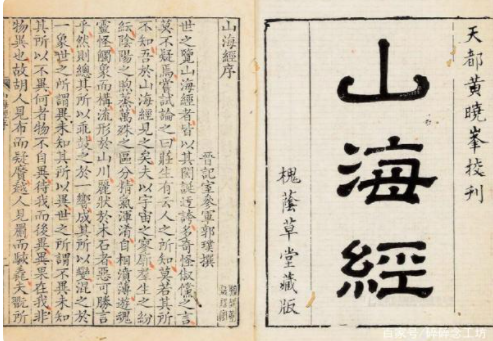 天都黄曉峯挍刊
山海經
槐蔭草堂藏版
山海經序
晉記室參軍郭璞撰
世之覽山海經者皆以其閎誕迂誇多奇怪俶儻之言
莫不疑焉嘗試論之曰莊生有云人之所知莫若其所
不知吾於山海經見之矣夫以宇宙之寥廓羣生之紛
紜陰陽之煦蒸萬殊之區分精氣渾淆自相濆薄遊魂
靈怪觸象而構流形於山川麗狀於木石者惡可勝言
乎然則總其所以乖鼓之於一響成其所以變混之於
一象世之所謂異未知其所以異世之所謂不異未知
其所以不異何者物不自異待我而後異異果在我非
物異也故胡人見布而疑黂越人見罽而駭毳夫翫所
百家号/